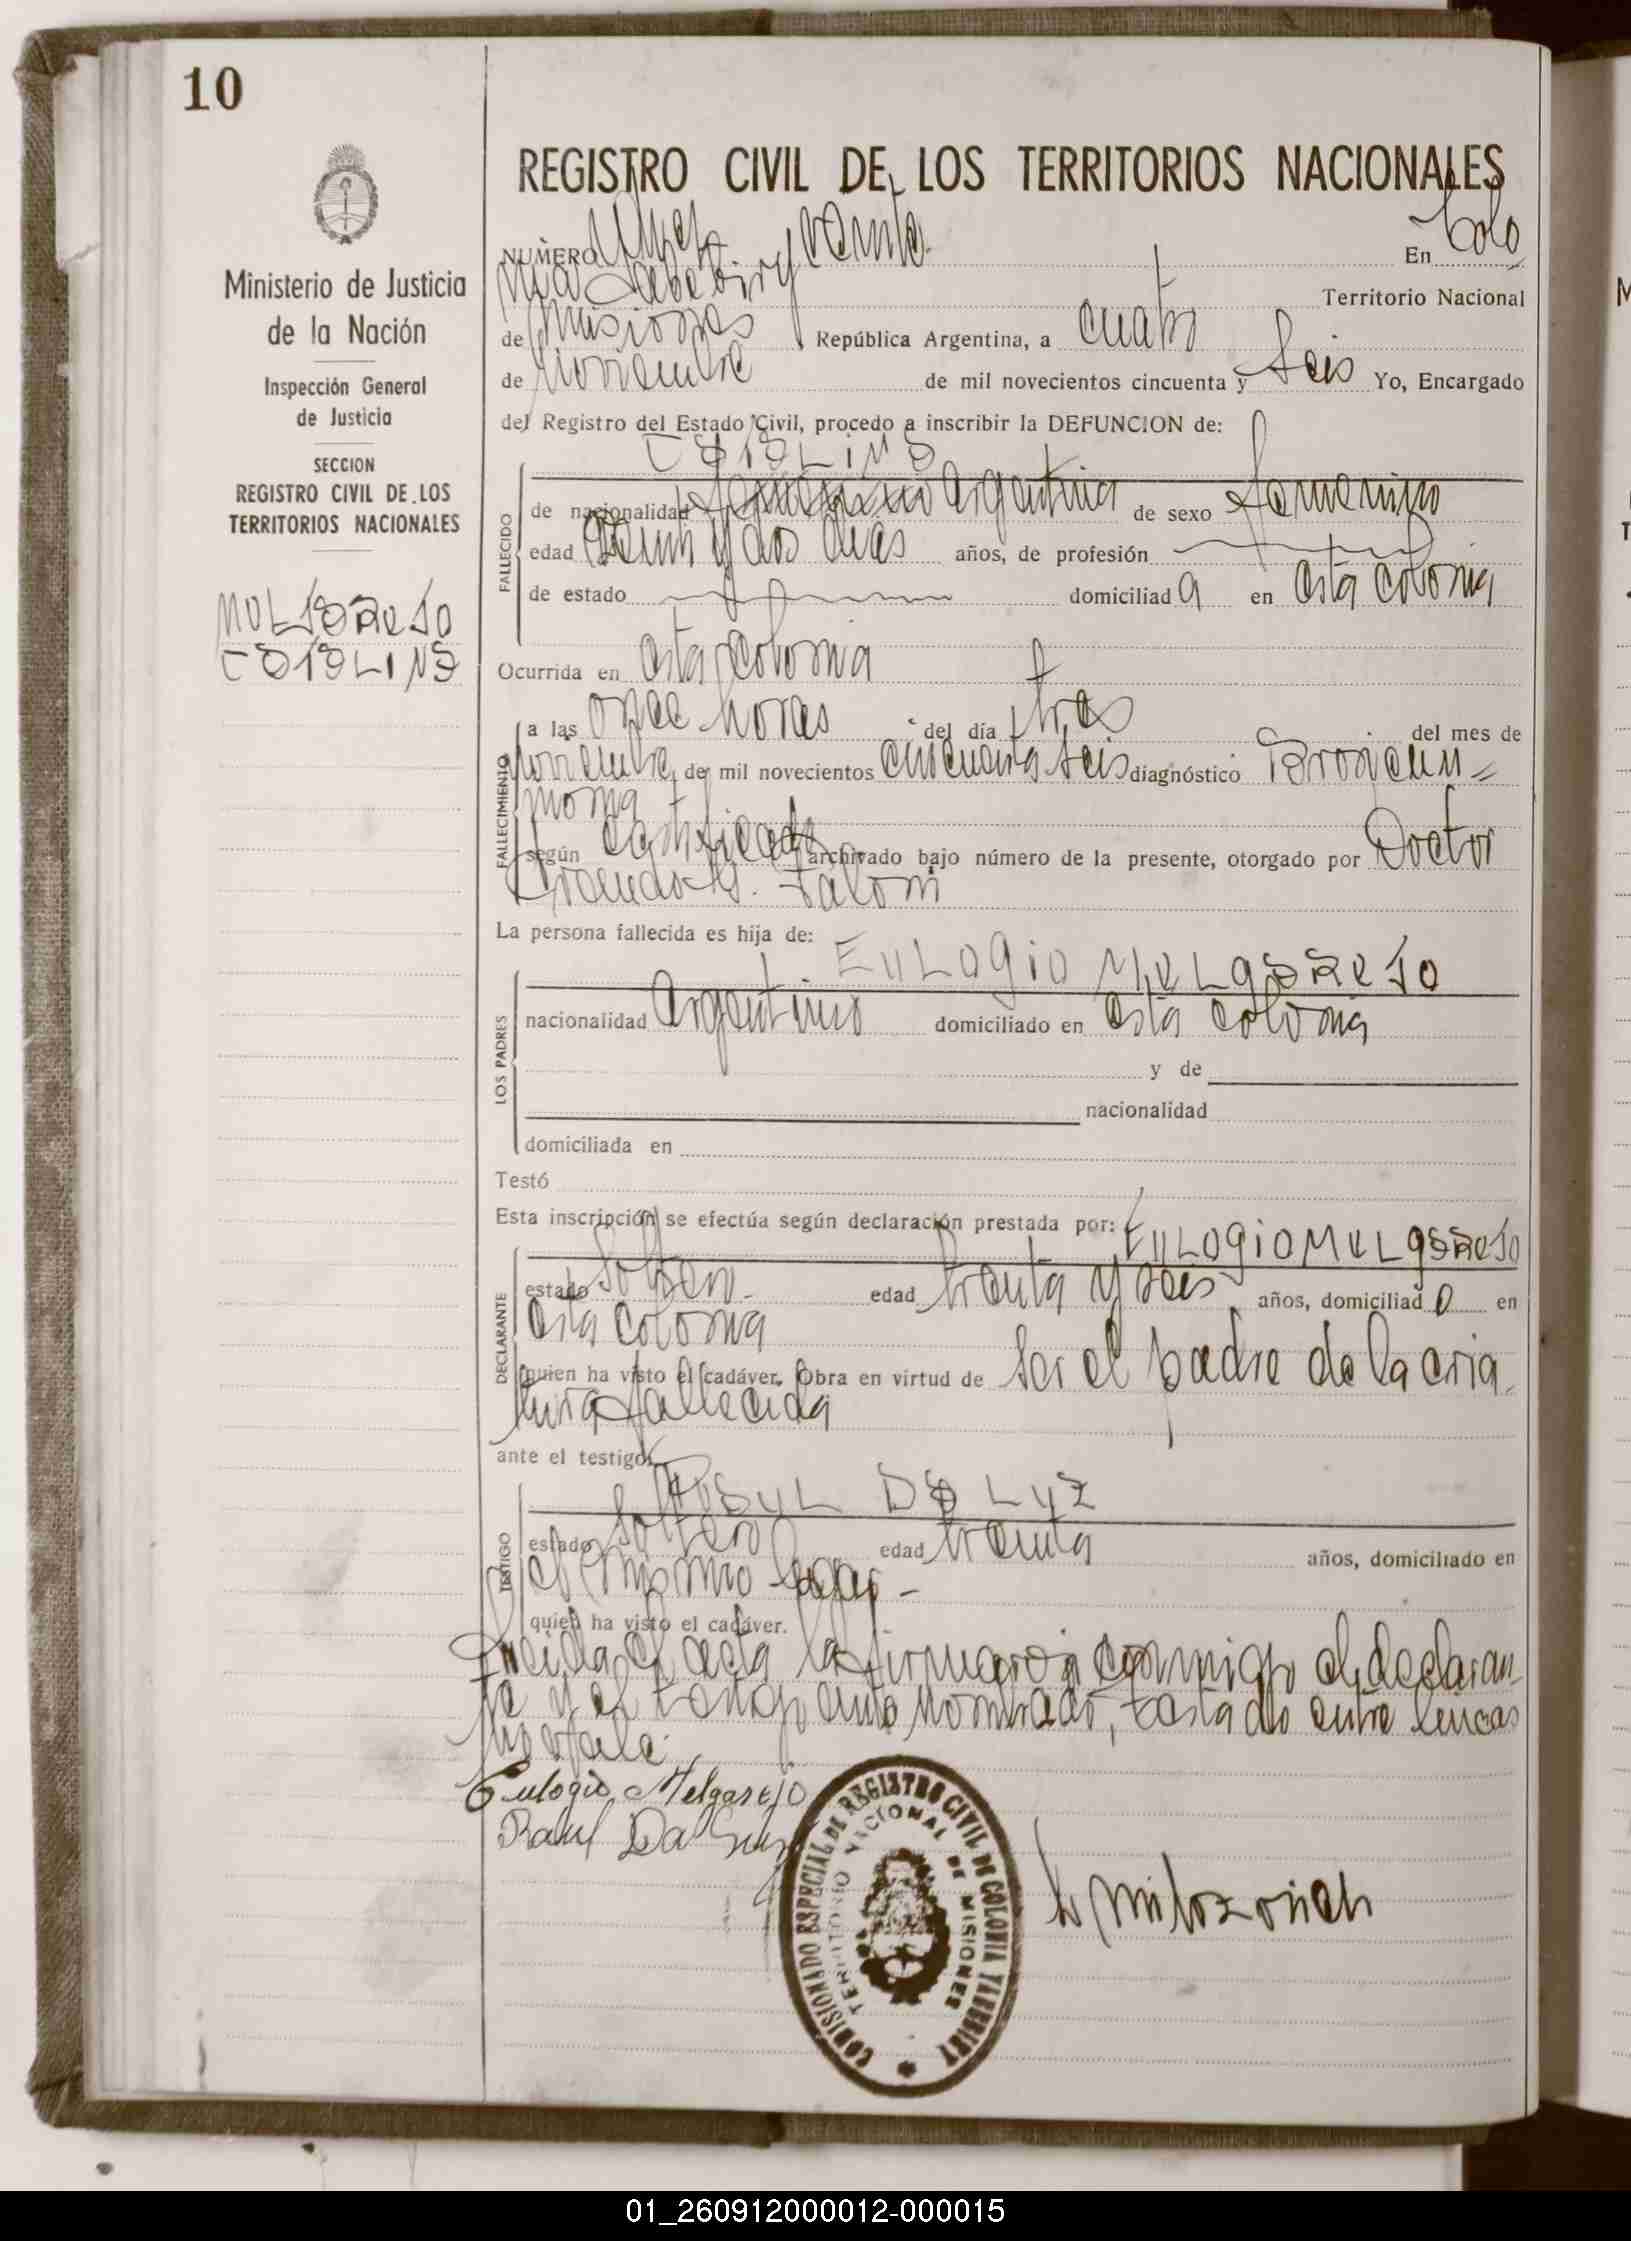 10
REGISTRO CIVIL DE LOS TERRITORIOS NACIONALES
Ministerio de Justicia
de la Nación
Inspección General
de Justicia
SECCION
REGISTRO CIVIL DE LOS
TERRITORIOS NACIONALES
MELGAREJO
CATALINA
NUMERO veinte. En Colo
nia Yabebiry Territorio Nacional
de Misiones República Argentina, a cuatro
de noviembre de mil novecientos cincuenta y seis Yo, Encargado
del Registro del Estado Civil, procedo a inscribir la DEFUNCION de:
CATALINA
FALLECIDO
de nacionalidad argentina de sexo femenino
edad veinti y dos dias años, de profesión
de estado domiciliad a en esta colonia
Ocurrida en esta colonia
FALLECIMIENTO
a las once horas del día tres del mes de
noviembre de mil novecientos cincuenta seis diagnóstico Broneum=
monia
según certificado archivado bajo número de la presente, otorgado por Doctor
Faloni
La persona fallecida es hija de:
EULOGIO MELGAREJO
LOS PADRES
nacionalidad argentino domiciliado en esta colonia
y de
nacionalidad
domiciliada en
Testó
Esta inscripción se efectúa según declaración prestada por:
EULOGIO MELGAREJO
DECLARANTE
estado soltero edad treinta y seis años, domiciliad o en
esta colonia
quien ha visto el cadáver. Obra en virtud de ser el padre de la cria
tura fallecida
ante el testigo
RAUL DA LUZ
TESTIGO
estado soltero edad treinta años, domiciliado en
el mismo lugar -
quien ha visto el cadáver.
Leida el acta la firmaron conmigo el declaran
te y el testigo ante nombrado, testado entre lineas
no vale.
Eulogio Melgarejo
Raul Da Luz
COMISIONADO ESPECIAL DE REGISTRO CIVIL DE COLONIA YABEBIRY
TERRITORIO NACIONAL DE MISIONES
01_260912000012-000015